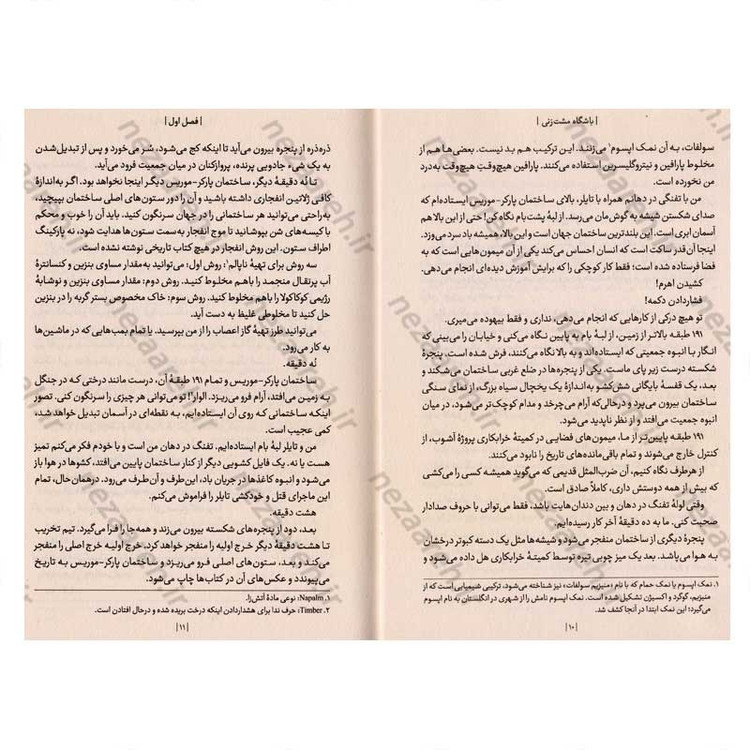 | باشگاه مشت‌زنی |
سولفات، به آن نمک اپسوم¹ می‌زنند. این ترکیب هم بد نیست. بعضی‌ها هم از
مخلوط پارافین و نیتروگلیسرین استفاده می‌کنند. پارافین هیچ‌وقتِ هیچ‌وقت به درد
من نخورده است.
من با تفنگی در دهانم همراه با تایلر، بالای ساختمان پارکر-موریس ایستاده‌ام که
صدای شکستن شیشه به گوش‌مان می‌رسد. از لبهٔ پشت‌بام نگاه کن! حتی از این بالا هم
آسمان ابری است. این بلندترین ساختمان جهان است و این بالا، همیشه باد سرد می‌وزد.
اینجا آن‌قدر ساکت است که انسان احساس می‌کند یکی از آن میمون‌هایی است که به
فضا فرستاده شده است؛ فقط کار کوچکی را که برایش آموزش دیده‌ای انجام می‌دهی.
کشیدن اهرم!
فشاردادن دکمه!
تو هیچ درکی از کارهایی که انجام می‌دهی، نداری و فقط بیهوده می‌میری.
۱۹۱ طبقه بالاتر از زمین، از لبهٔ بام به پایین نگاه می‌کنی و خیابان را می‌بینی که
انگار با انبوه جمعیتی که ایستاده‌اند و به بالا نگاه می‌کنند، فرش شده است. پنجرهٔ
شکسته درست زیر پای ماست. یکی از پنجره‌ها در ضلع غربی ساختمان می‌شکند و
بعد، یک قفسهٔ بایگانی شش‌کشو به اندازهٔ یک یخچال سیاه بزرگ، از نمای سنگی
ساختمان بیرون می‌پرد و درحالی‌که آرام می‌چرخد و مدام کوچک‌تر می‌شود، در میان
انبوه جمعیت می‌افتد و از نظر ناپدید می‌شود.
۱۹۱ طبقه پایین‌تر از ما، میمون‌های فضایی در کمیتهٔ خرابکاری پروژهٔ آشوب، از
کنترل خارج می‌شوند و تمام باقی‌مانده‌های تاریخ را نابود می‌کنند.
از هرطرف نگاه کنیم، آن ضرب‌المثل قدیمی که می‌گوید همیشه کسی را می‌کشی
که بیش از همه دوستش داری، کاملاً صادق است.
وقتی لولهٔ تفنگ در دهان و بین دندان‌هایت باشد، فقط می‌توانی با حروف صدادار
صحبت کنی. ما به ده دقیقهٔ آخر کار رسیده‌ایم.
پنجرهٔ دیگری از ساختمان منفجر می‌شود و شیشه‌ها مثل یک دسته کبوتر درخشان
به هوا می‌پاشد. بعد یک میز چوبی تیره توسط کمیتهٔ خرابکاری هل داده می‌شود و
۱. نمک اپسوم یا نمک حمام که با نام «منیزیم سولفات» نیز شناخته می‌شود، ترکیبی شیمیایی است که از
منیزیم، گوگرد و اکسیژن تشکیل شده است. نمک اپسوم نامش را از شهری در انگلستان به نام اپسوم
می‌گیرد؛ این نمک ابتدا در آنجا کشف شد.
| ۱۰ |
| فصل اول |
ذره‌ذره از پنجره بیرون می‌آید تا اینکه کج می‌شود، سُر می‌خورد و پس از تبدیل‌شدن
به یک شیء جادویی پرنده، پروازکنان در میان جمعیت فرود می‌آید.
تا نُه دقیقهٔ دیگر، ساختمان پارکر-موریس دیگر اینجا نخواهد بود. اگر به‌اندازهٔ
کافی ژلاتین انفجاری داشته باشید و آن را دور ستون‌های اصلی ساختمان بپیچید،
به‌راحتی می‌توانید هر ساختمانی را در جهان سرنگون کنید. باید آن را خوب و محکم
با کیسه‌های شن بپوشانید تا موج انفجار به‌سمت ستون‌ها هدایت شود، نه پارکینگ
اطراف ستون. این روش انفجار در هیچ کتاب تاریخی نوشته نشده است.
سه روش برای تهیهٔ ناپالم¹: روش اول: می‌توانید به‌مقدار مساوی بنزین و کنسانترهٔ
آب پرتقال منجمد را باهم مخلوط کنید. روش دوم: مقدار مساوی بنزین و نوشابهٔ
رژیمی کوکاکولا را باهم مخلوط کنید. روش سوم: خاک مخصوص بستر گربه را در بنزین
حل کنید تا مخلوطی غلیظ به دست آید.
می‌توانید طرز تهیهٔ گاز اعصاب را از من بپرسید. یا تمام بمب‌هایی که در ماشین‌ها
به کار می‌رود.
نُه دقیقه.
ساختمان پارکر-موریس و تمام ۱۹۱ طبقهٔ آن، درست مانند درختی که در جنگل
به زمین می‌افتد، آرام فرو می‌ریزد. الوار²! تو می‌توانی هر چیزی را سرنگون کنی. تصور
اینکه ساختمانی که روی آن ایستاده‌ایم، به نقطه‌ای در آسمان تبدیل خواهد شد،
کمی عجیب است.
من و تایلر لبهٔ بام ایستاده‌ایم. تفنگ در دهان من است و با خودم فکر می‌کنم تمیز
هست یا نه. یک فایل کشویی دیگر از کنار ساختمان پایین می‌افتد، کشوها در هوا باز
می‌شود و انبوه کاغذها در جریان باد، این‌طرف و آن‌طرف می‌رود. درهمان‌حال، تمام
این ماجرای قتل و خودکشی تایلر را فراموش می‌کنم.
هشت دقیقه.
بعد، دود از پنجره‌های شکسته بیرون می‌زند و همه‌جا را فرا می‌گیرد. تیم تخریب
تا هشت دقیقهٔ دیگر خرج اولیه را منفجر خواهد کرد. خرج اولیه خرج اصلی را منفجر
می‌کند و بعد، ستون‌های اصلی فرو می‌ریزد و ساختمان پارکر-موریس به تاریخ
می‌پیوندد و عکس‌های آن در کتاب‌ها چاپ می‌شود.
۱. Napalm: نوعی مادهٔ آتش‌زا.
۲. Timber: حرف ندا برای هشداردادن اینکه درخت بریده شده و درحال افتادن است.
| ۱۱ |
nezaareh.ir